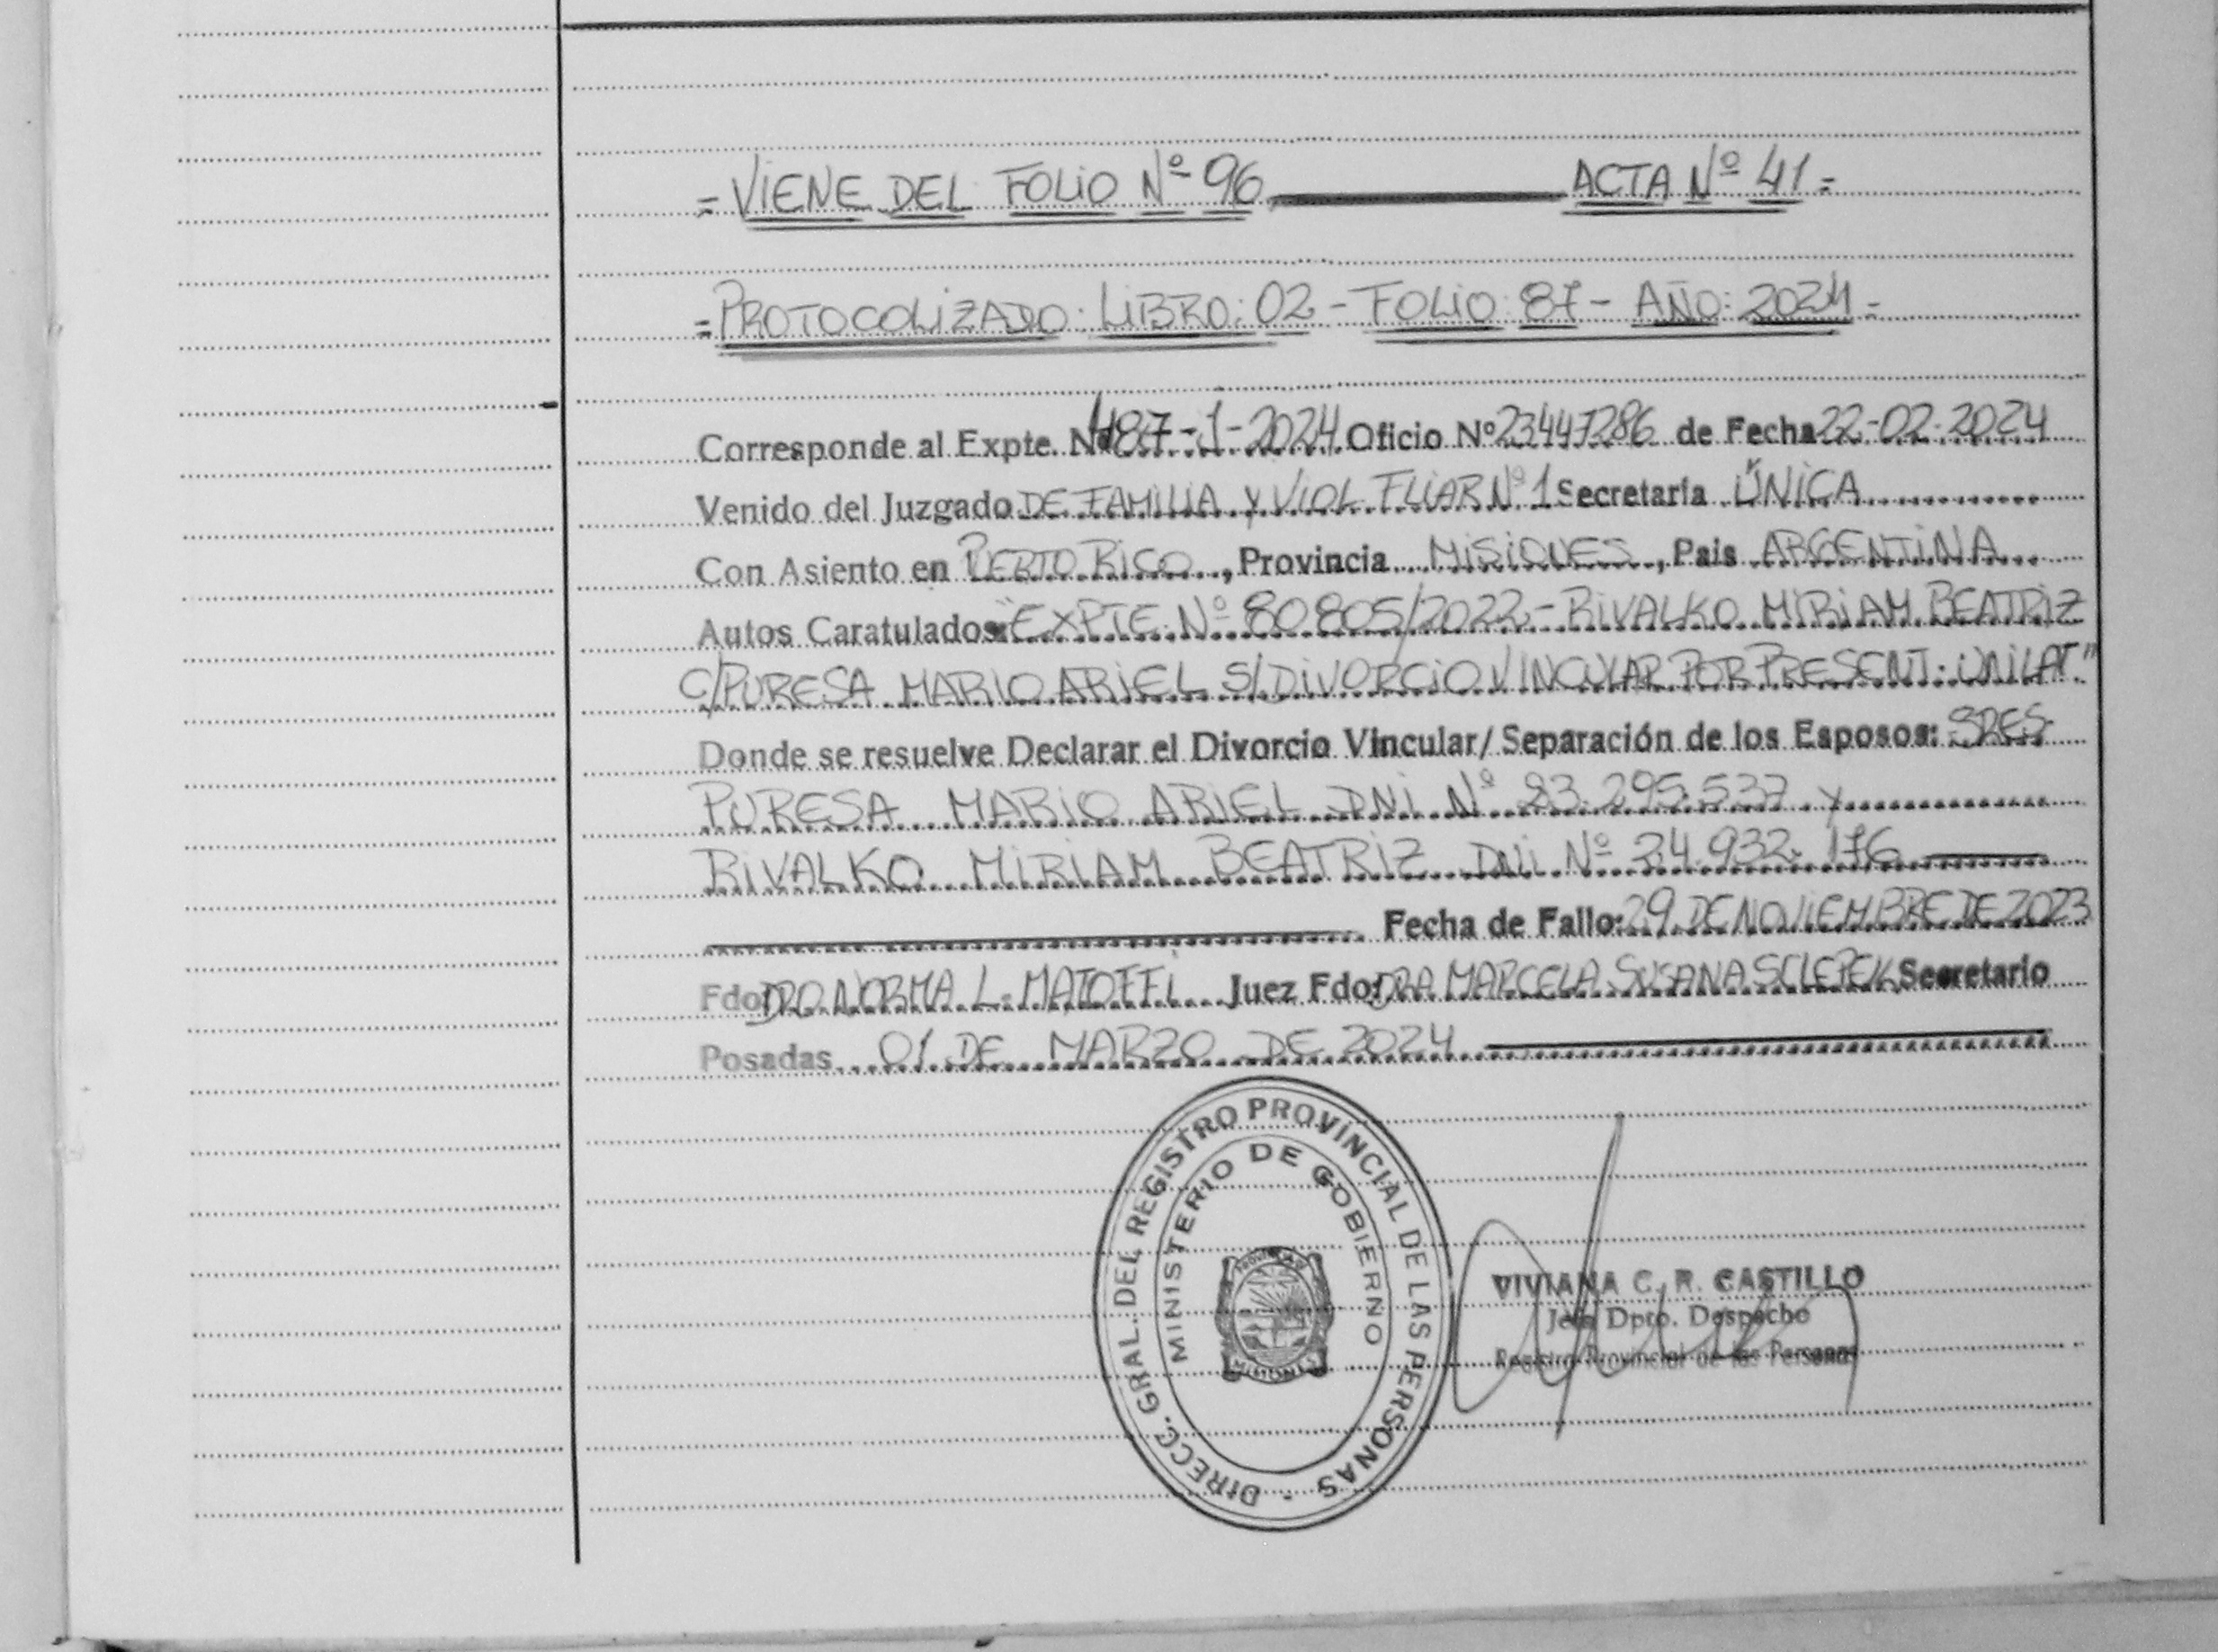 = VIENE DEL FOLIO Nº 96 ACTA Nº 41 =
= PROTOCOLIZADO: LIBRO: 02 - FOLIO: 87 - AÑO: 2024 =
Corresponde al Expte. Nº 487-1-2024 Oficio Nº 23447286 de Fecha 22-02-2024
Venido del Juzgado DE FAMILIA Y VIOL FLIAR Nº 1 Secretaría ÚNICA
Con Asiento en PUERTO RICO, Provincia MISIONES, Pais ARGENTINA
Autos Caratulados: "EXPTE. Nº 80805/2022 - RIVALKO MIRIAM BEATRIZ
C/PURESA MARIO ARIEL S/DIVORCIO VINCULAR POR PRESENT. UNILAT"
Donde se resuelve Declarar el Divorcio Vincular/ Separación de los Esposos: SRES
PURESA MARIO ARIEL DNI Nº 23.295.537 y
RIVALKO MIRIAM BEATRIZ DNI Nº 24.932.176
Fecha de Fallo: 29 DE NOVIEMBRE DE 2023
Fdo: NORMA L. Juez Fdo: DRA MARCELA SUSANA SCLEPEK Secretario
Posadas 01 DE MARZO DE 2024
DIRECC. GRAL. DEL REGISTRO PROVINCIAL DE LAS PERSONAS -
MINISTERIO DE GOBIERNO
MISIONES
VIVIANA C. R. CASTILLO
Jefa Dpto. Despacho
Registro Provincial de las Personas